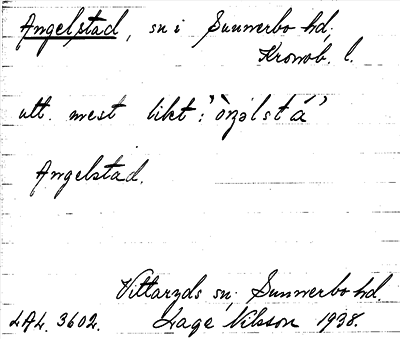 Angelstad, sn i Sunnerbo hd,
Kronob. l.
utt. mest likt: "òŋəlstá"
Angelstad.
Vittaryds sn, Sunnerbo hd.
LAL. 3602. Lage Nilsson 1938.